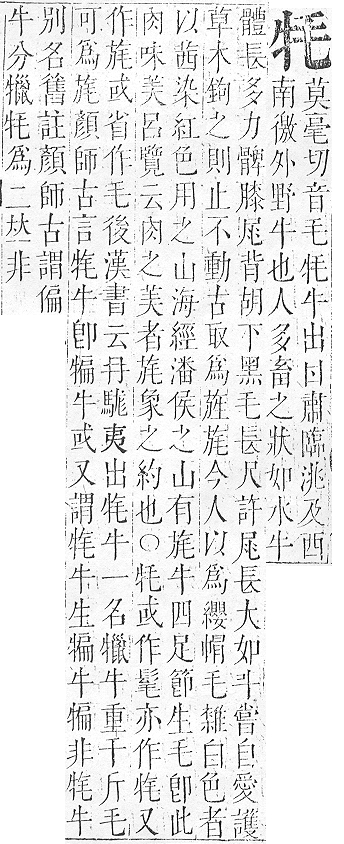 牦
莫毫切音毛牦牛出甘肅臨洮及西
南徼外野牛也人多畜之狀如水牛
體長多力髀膝尾背胡下黑毛長尺許尾長大如斗嘗自愛護
草木鉤之則止不動古取爲旌旄今人以爲纓帽毛雜白色者
以茜染紅色用之山海經潘侯之山有旄牛四足節生毛卽此
肉味美呂覽云肉之美者旄象之約也○牦或作髦亦作㹈又
作旄或省作毛後漢書云冉駹夷出牦牛一名犣牛重千斤毛
可爲旄顏師古言牦牛卽犏牛或又謂牦牛生犏牛犏非牦牛
別名舊註顏師古謂偏
牛分犣牦爲二𠀤非